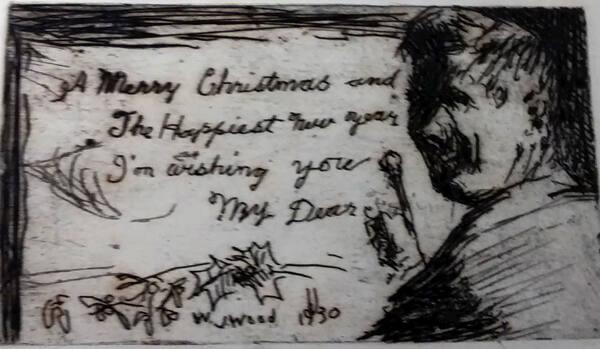 A Merry Christmas and
The Happiest New Year
I'm wishing you
My Dear
W. J. Wood 1930